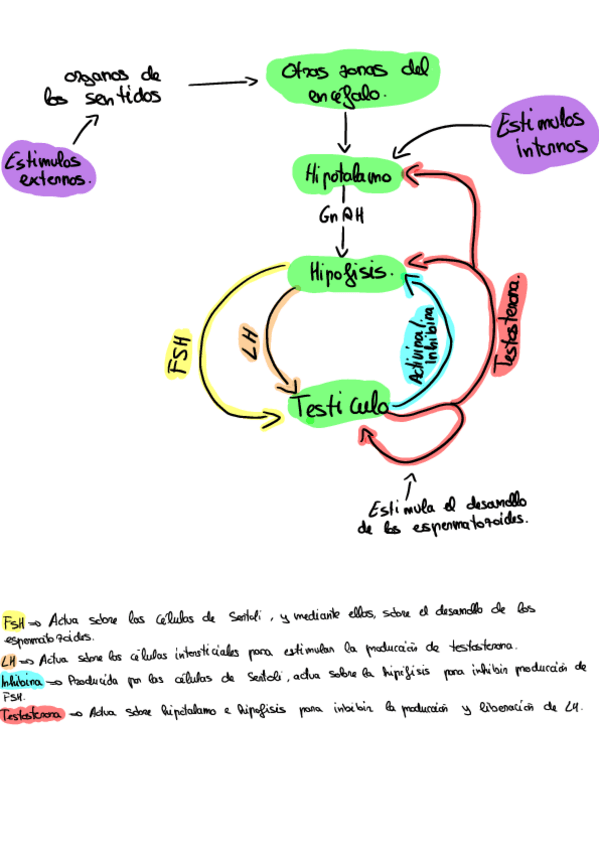 organos de
los sentidos
Otras zonas del
encéfalo.
Estimulos
externos.
Estimulos
internos
Hipotalamo
GnRH
Hipofisis.
FSH
LH
Activina/
Inhibina
Testosterona.
Testiculo
Estimula el desarrollo
de los espermatozoides.
FSH → Actua sobre las células de Sertoli, y mediante ellas, sobre el desarrollo de los
espermatozoides.
LH → Actua sobre las células intersticiales para estimular la producción de testosterona.
Inhibina → Producida por las células de Sertoli, actua sobre la hipófisis para inhibir producción de
FSH.
Testosterona → Actua sobre hipotalamo e hipofisis para inhibir la producción y liberación de LH.